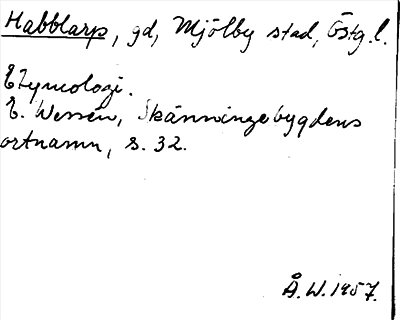 Habblarp, gd, Mjölby stad, Östg. l.
Etymologi.
E. Wessén, Skänningebygdens
ortnamn, s. 32.
Å. W. 1957.